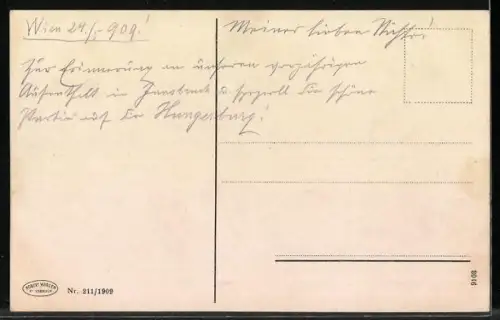 Wien 24./- 909!
Meiner lieben Nichte!
Zur Erinnerung an unseren vorjährigen
Aufenthalt in Innsbruck u. speziell die schöne
Partie auf die Hungerburg!
Nr. 211/1909
9108